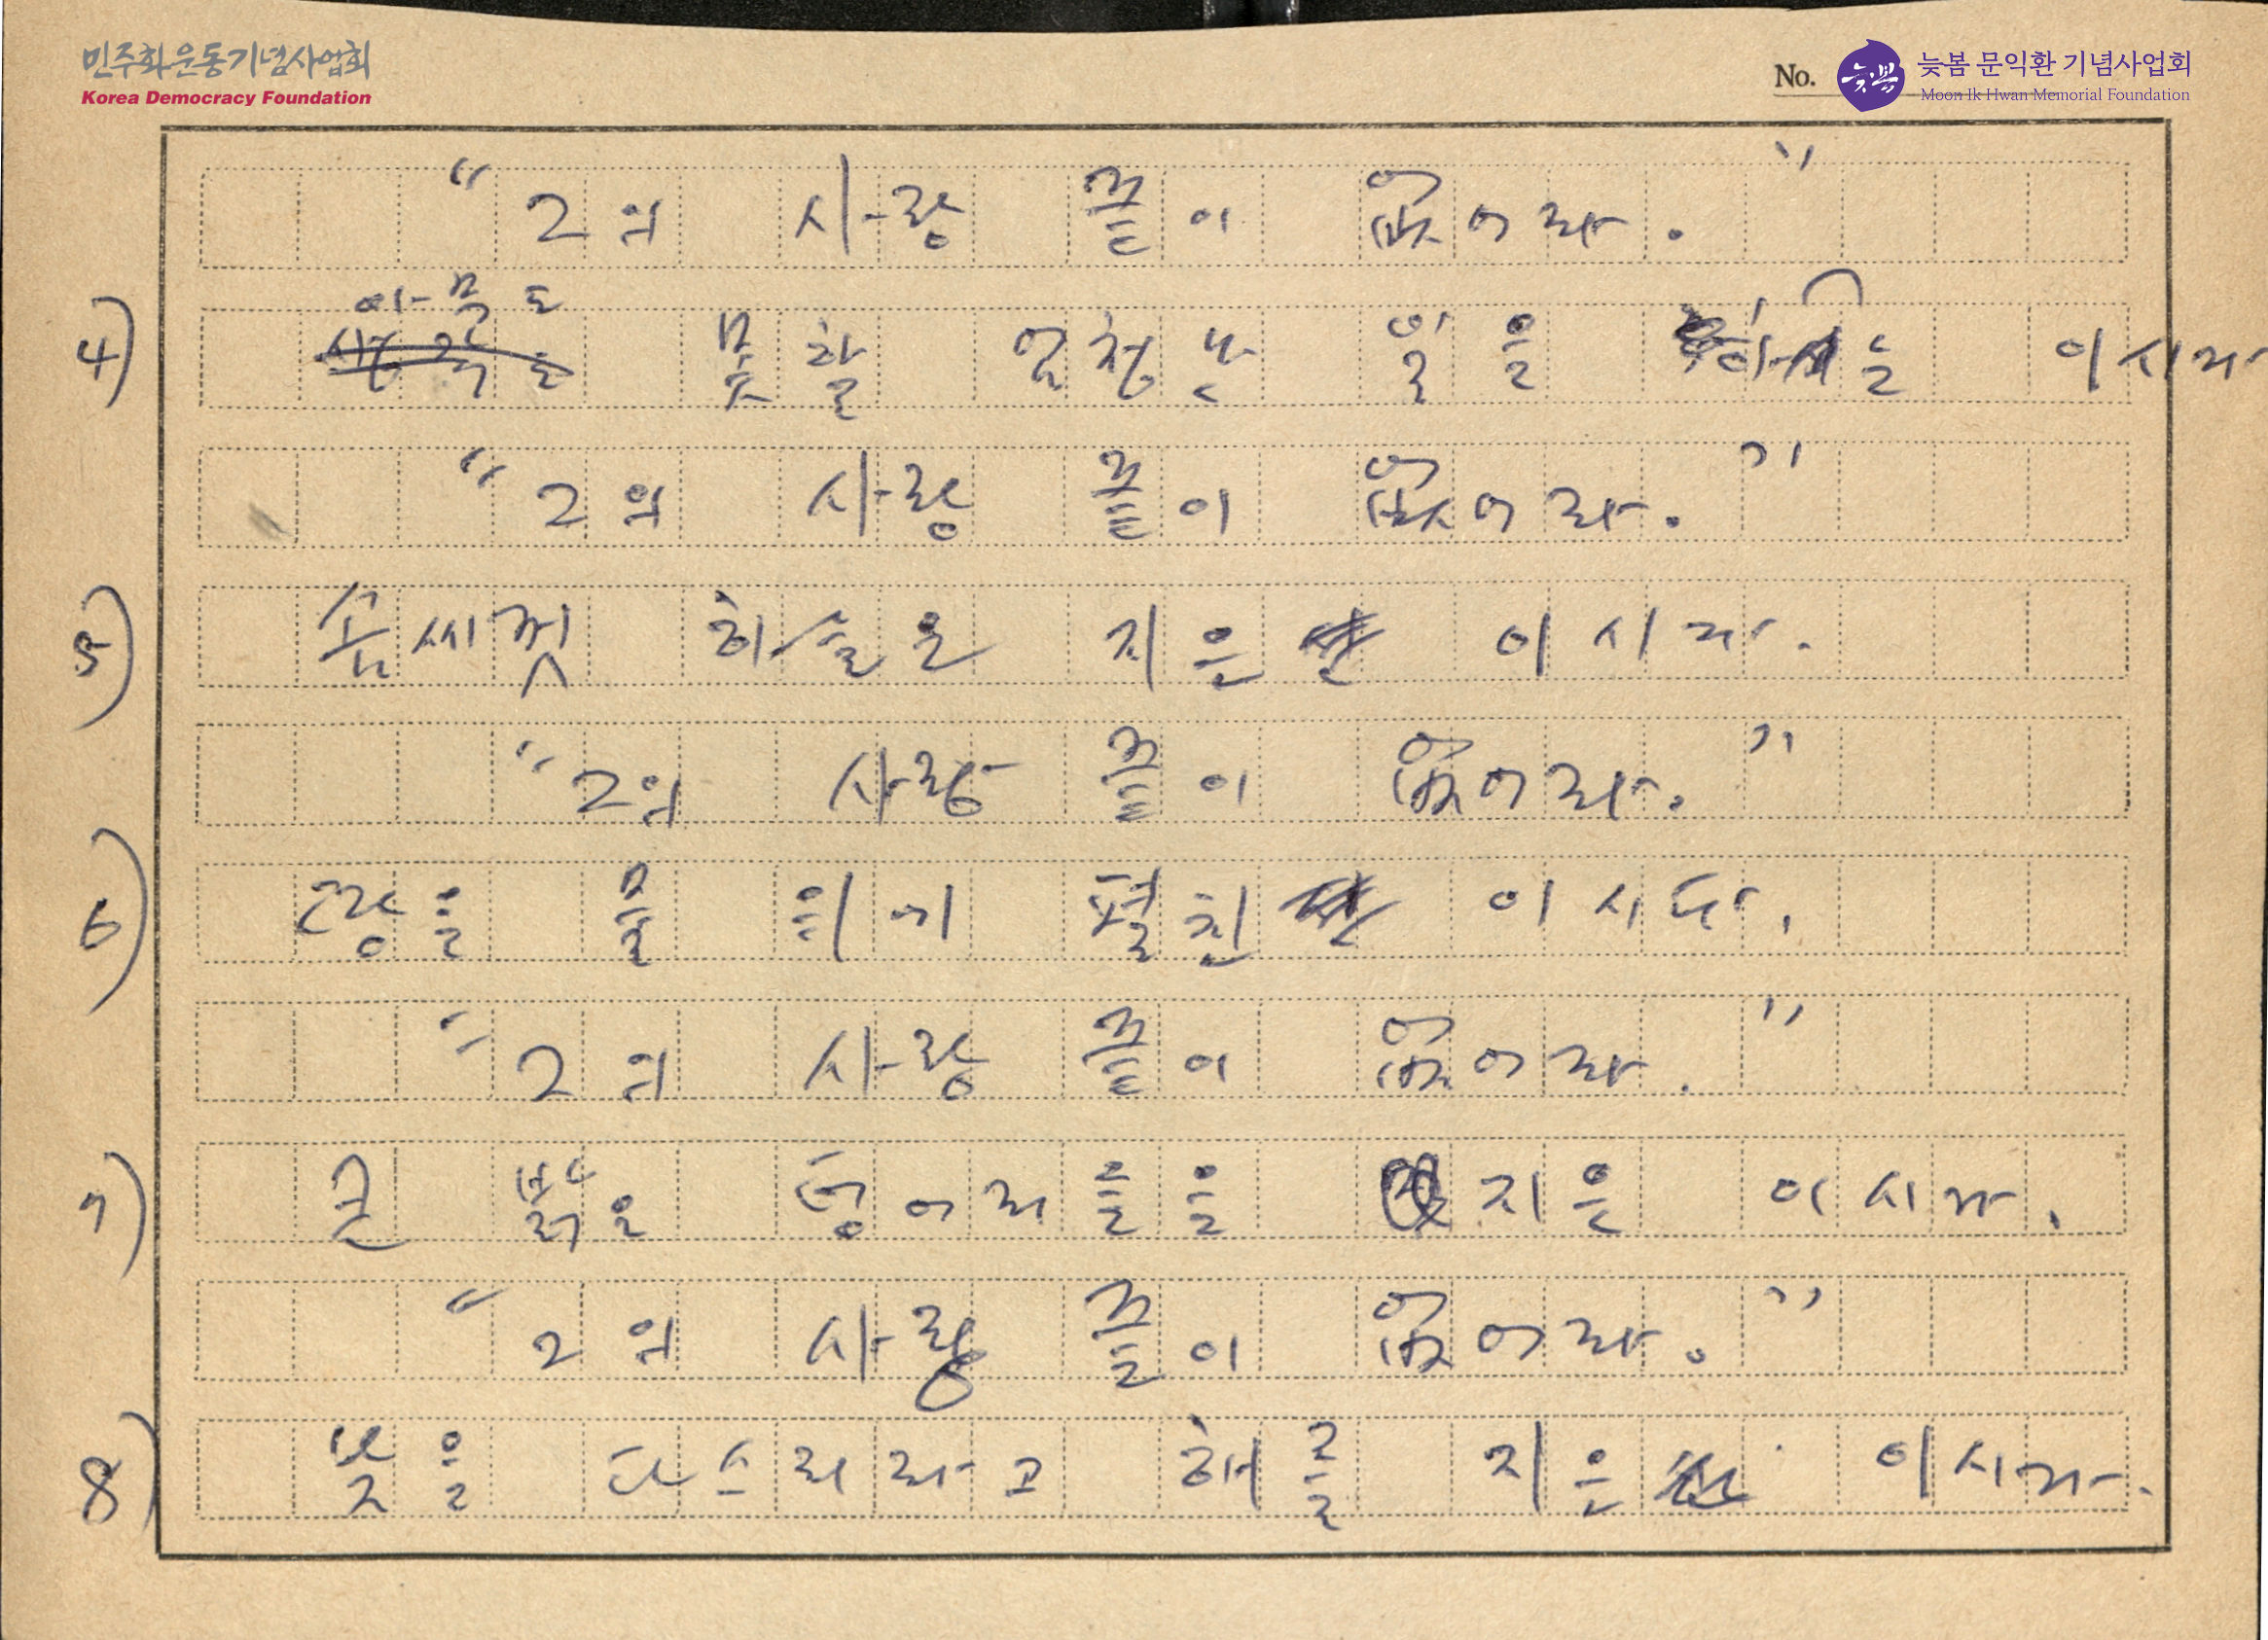 민주화운동기념사업회
Korea Democracy Foundation
No.
늦봄 문익환 기념사업회
Moon Ik Hwan Memorial Foundation
"그의 사랑 끝이 없어라."
아무도
4) 못할 엄청난 일을 하시는 이시라
"그의 사랑 끝이 없어라."
5) 솜씨껏 하늘은 지은 이시라.
"그의 사랑 끝이 없어라."
6) 땅을 물 위에 펼친 이시다.
"그의 사랑 끝이 없어라."
7) 큰 붉은 덩어리들을 지은 이시라.
"그의 사랑 끝이 없어라."
8) 낮을 다스리라고 해를 지은 이시라.